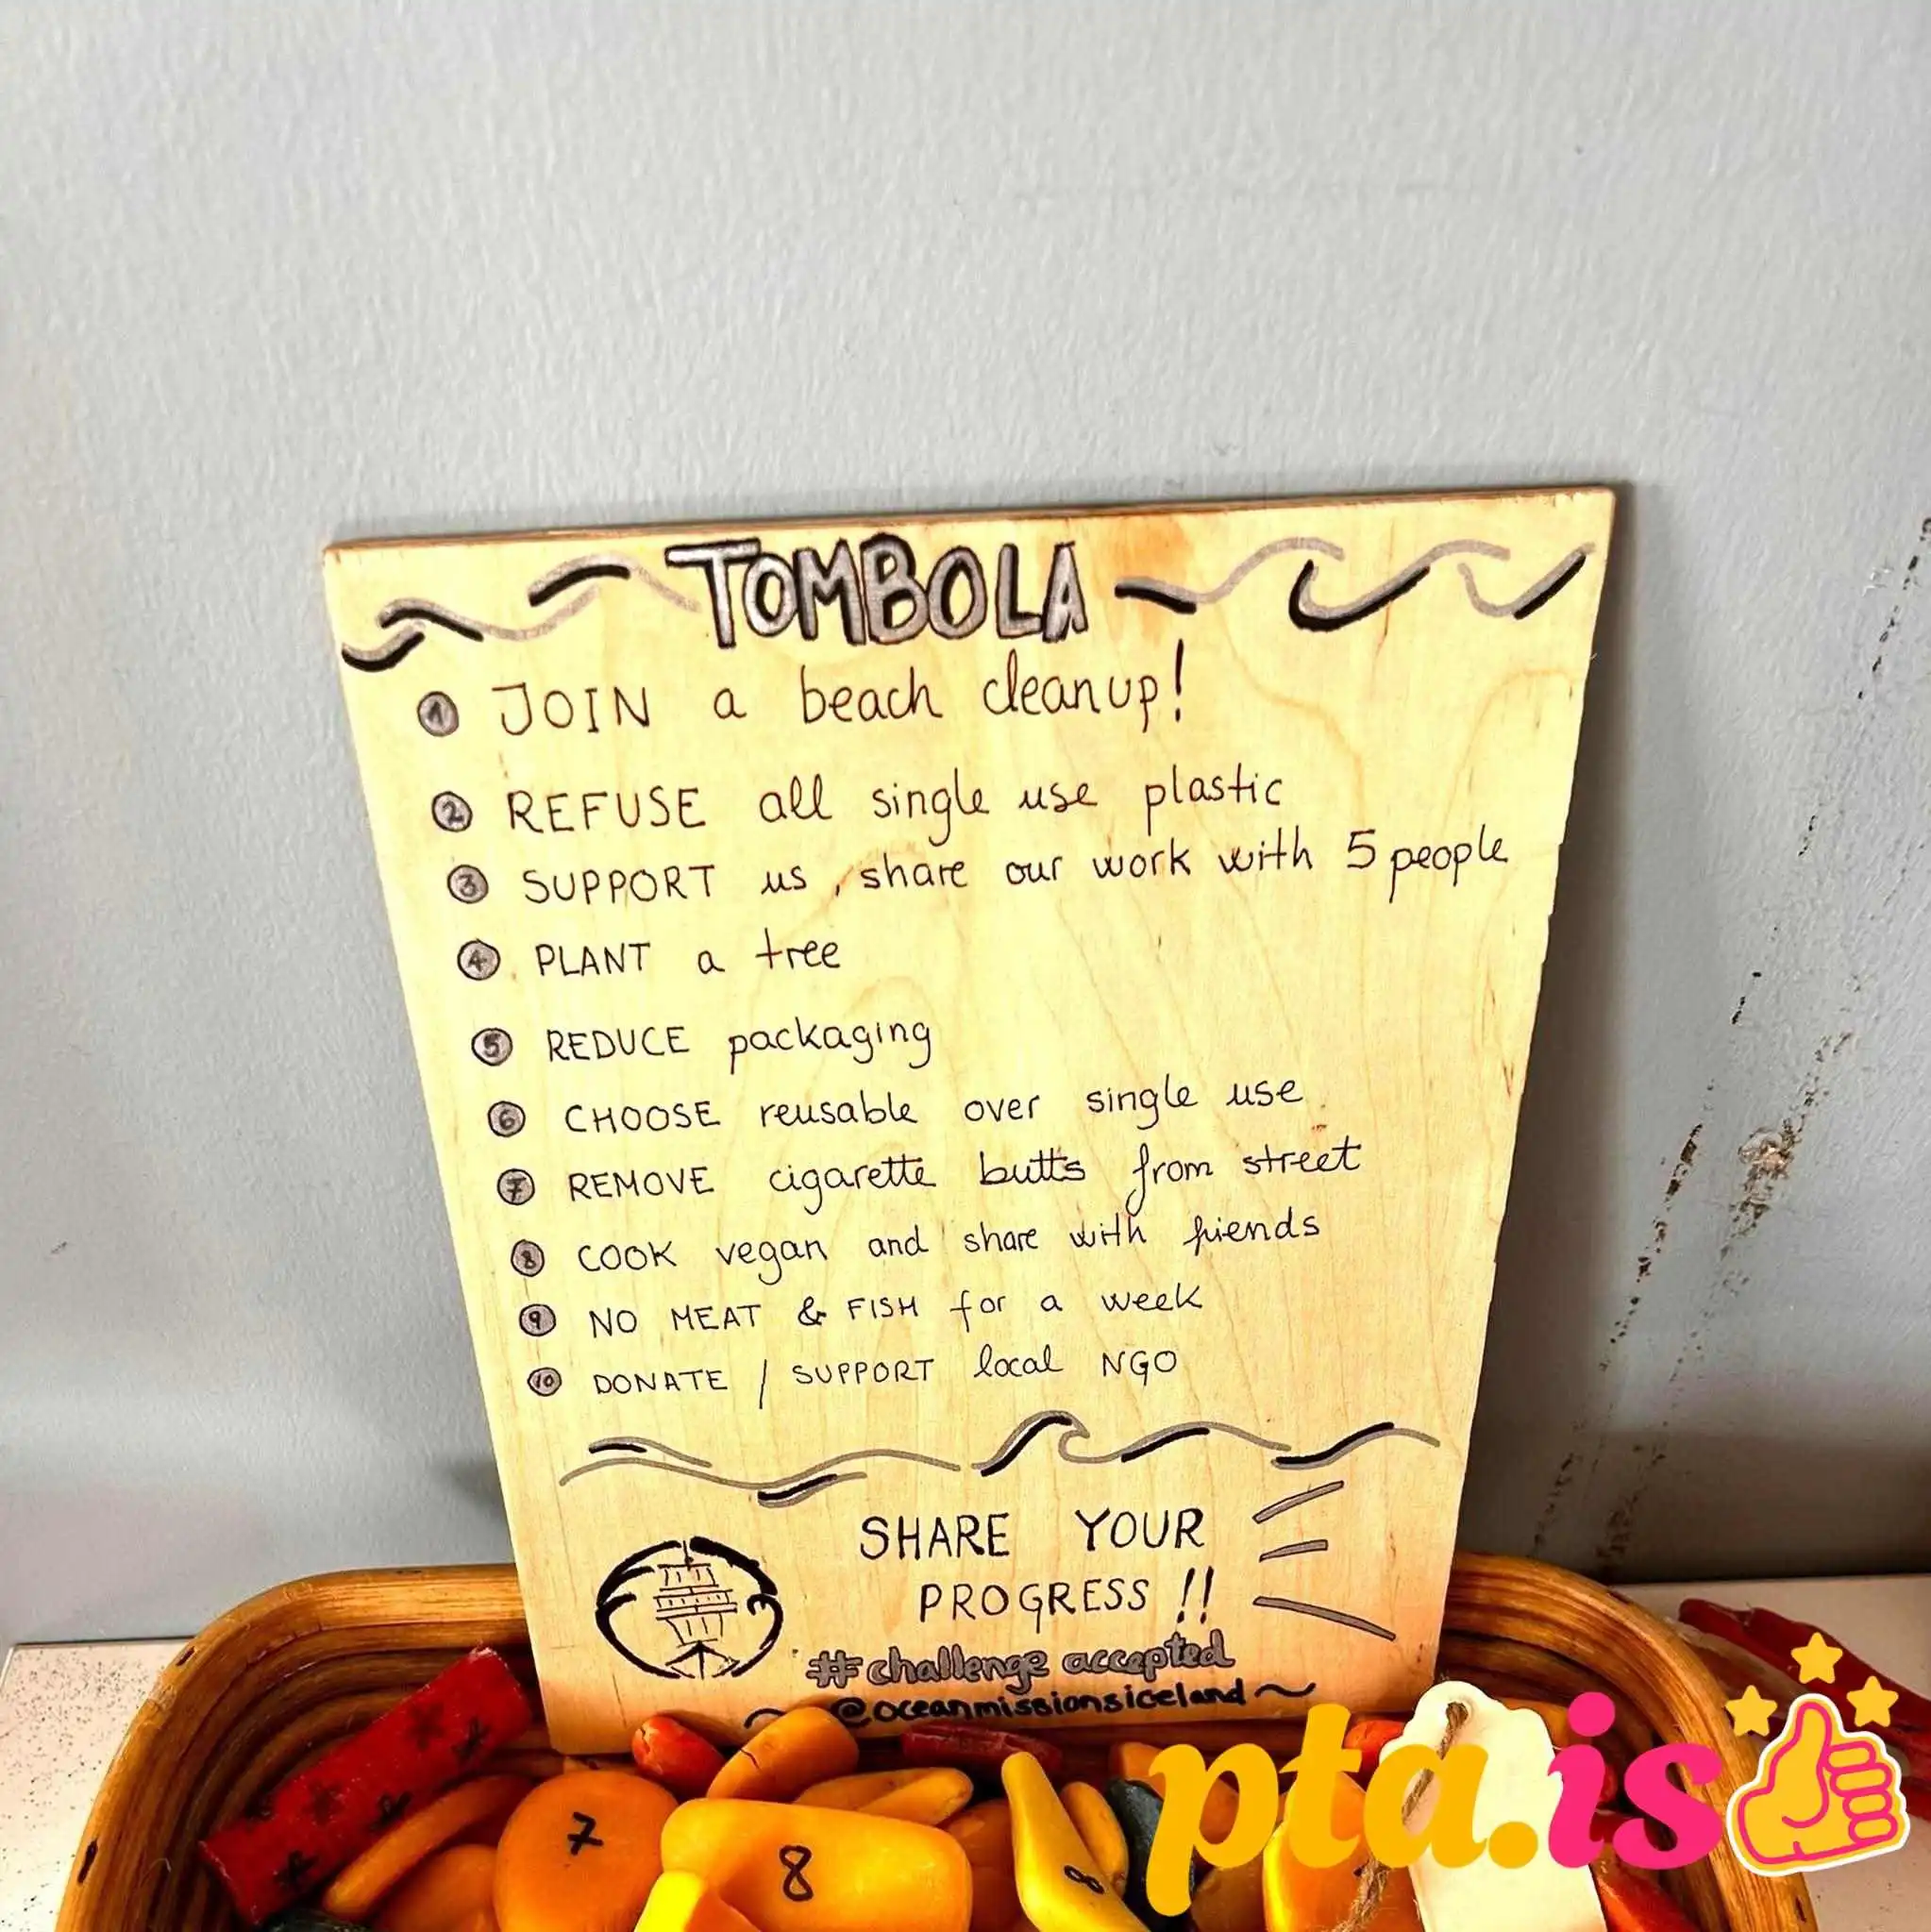 TOMBOLA
1 JOIN a beach cleanup!
2 REFUSE all single use plastic
3 SUPPORT us, share our work with 5 people
4 PLANT a tree
5 REDUCE packaging
6 CHOOSE reusable over single use
7 REMOVE cigarette butts from street
8 COOK vegan and share with friends
9 NO MEAT & FISH for a week
10 DONATE / SUPPORT local NGO
SHARE YOUR
PROGRESS !!
#challenge accepted
@oceanmissionsiceland
7
8
8
pta.is